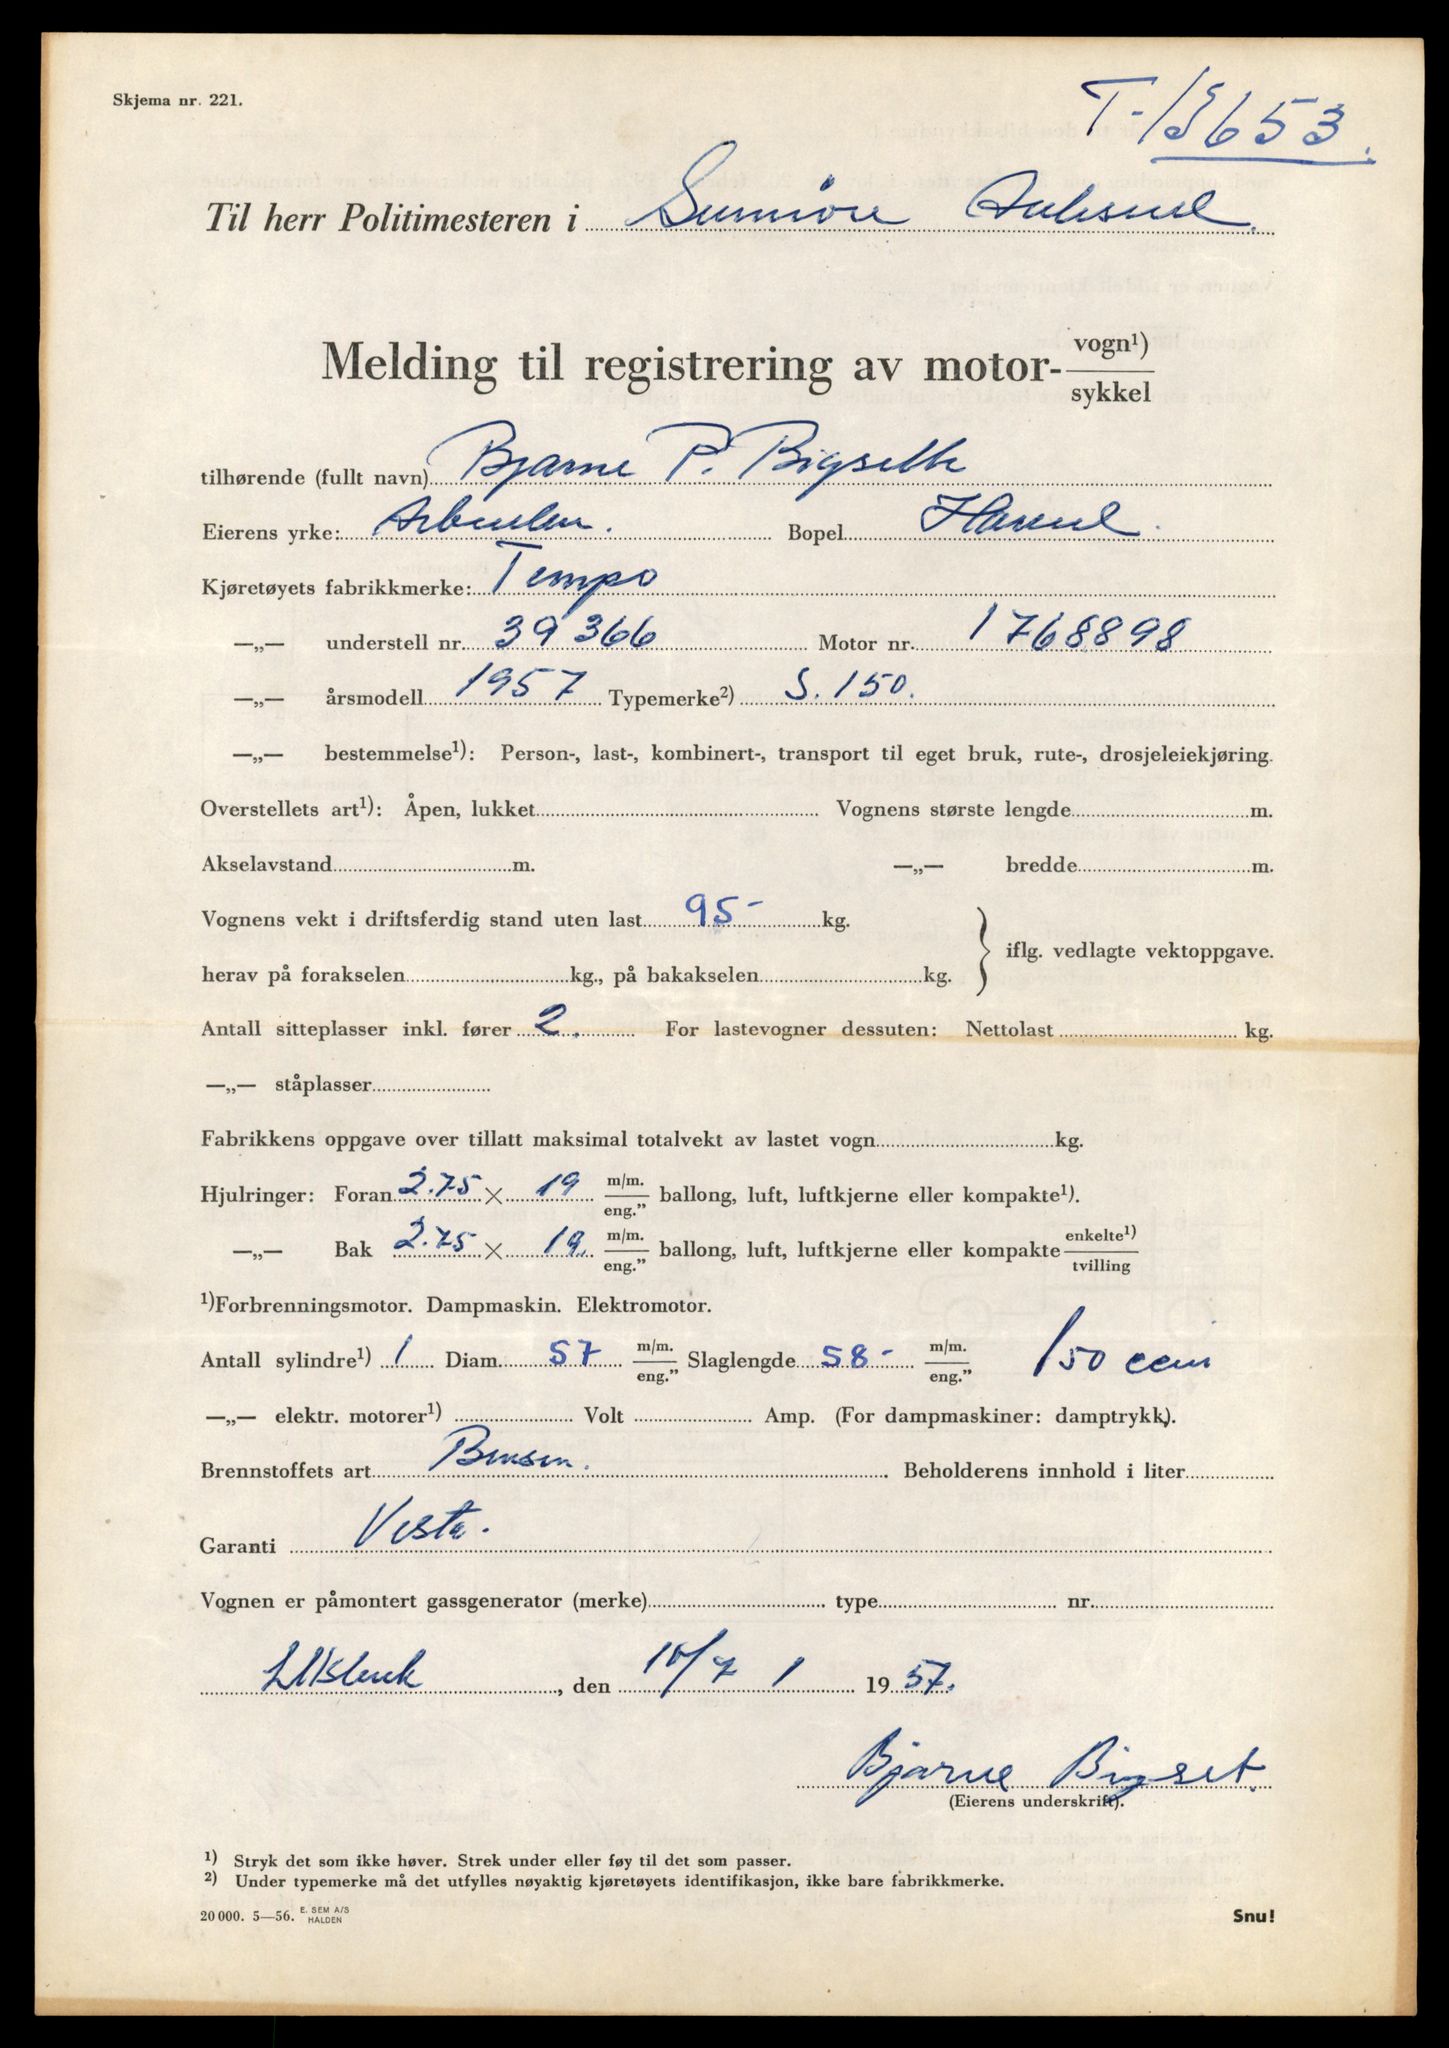 Skjema nr. 221.
T-13653.
Til herr Politimesteren i Sunnmøre Aalesund.
Melding til registrering av motor- vogn¹) / sykkel
tilhørende (fullt navn) Bjarne P. Bigseth
Eierens yrke: Arbeider. Bopel Hareid.
Kjøretøyets fabrikkmerke: Tempo
—„— understell nr. 39366 Motor nr. 1768898
—„— årsmodell 1957 Typemerke²) S. 150.
—„— bestemmelse¹): Person-, last-, kombinert-, transport til eget bruk, rute-, drosjeleiekjøring.
Overstellets art¹): Åpen, lukket Vognens største lengde m.
Akselavstand m. —„— bredde m.
Vognens vekt i driftsferdig stand uten last 95- kg.
iflg. vedlagte vektoppgave.
herav på forakselen kg., på bakakselen kg.
Antall sitteplasser inkl. fører 2. For lastevogner dessuten: Nettolast kg.
—„— ståplasser
Fabrikkens oppgave over tillatt maksimal totalvekt av lastet vogn kg.
Hjulringer: Foran 2.75 × 19 m/m. / eng.” ballong, luft, luftkjerne eller kompakte¹).
—„— Bak 2.75 × 19. m/m. / eng.” ballong, luft, luftkjerne eller kompakte enkelte¹) / tvilling
¹)Forbrenningsmotor. Dampmaskin. Elektromotor.
Antall sylindre¹) 1 Diam. 57 m/m. / eng.” Slaglengde 58- m/m. / eng.” 150 ccm
—„— elektr. motorer¹) Volt Amp. (For dampmaskiner: damptrykk).
Brennstoffets art Bensin. Beholderens innhold i liter
Garanti Vesta.
Vognen er påmontert gassgenerator (merke) type nr.
, den 10/7 1 1957.
Bjarne Bigset.
(Eierens underskrift).
¹) Stryk det som ikke høver. Strek under eller føy til det som passer.
²) Under typemerke må det utfylles nøyaktig kjøretøyets identifikasjon, ikke bare fabrikkmerke.
20 000. 5—56. E. SEM A/S HALDEN Snu!